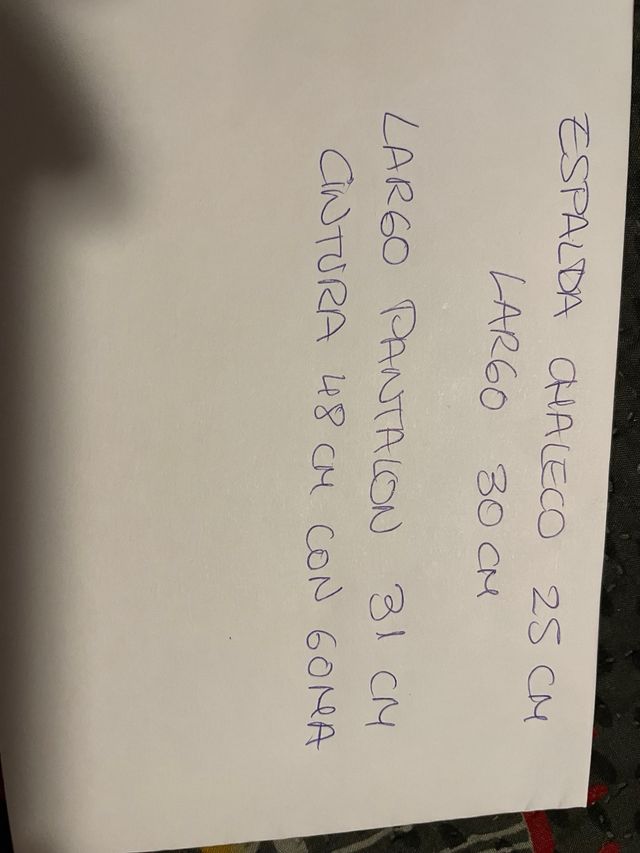 ESPALDA CHALECO 25 CM
LARGO 30 CM
LARGO PANTALON 31 CM
CINTURA 48 CM CON GOMA